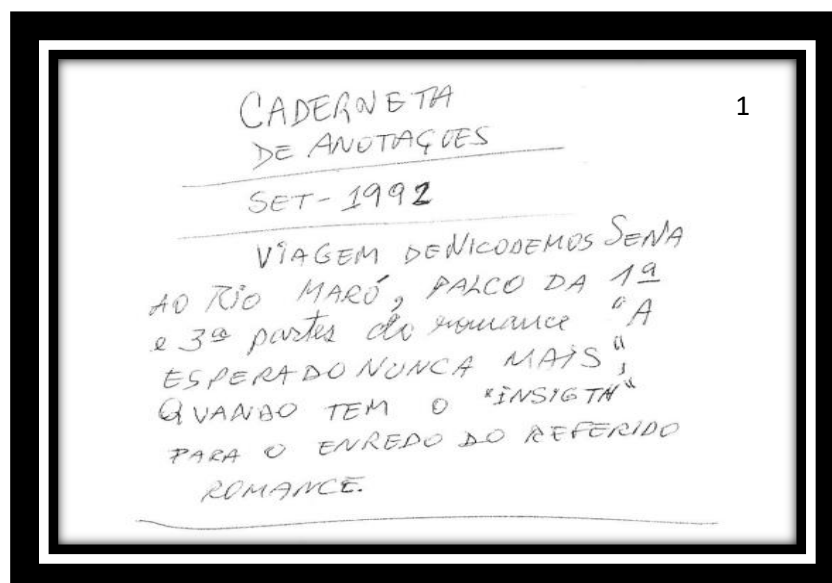 CADERNETA
1
DE ANOTAÇÕES
SET - 1992
VIAGEM DE NICODEMOS SENA
AO RIO MARÓ, PALCO DA 1ª
e 3ª partes do romance "A
ESPERA DO NUNCA MAIS",
QUANDO TEM O "INSIGTH"
PARA O ENREDO DO REFERIDO
ROMANCE.